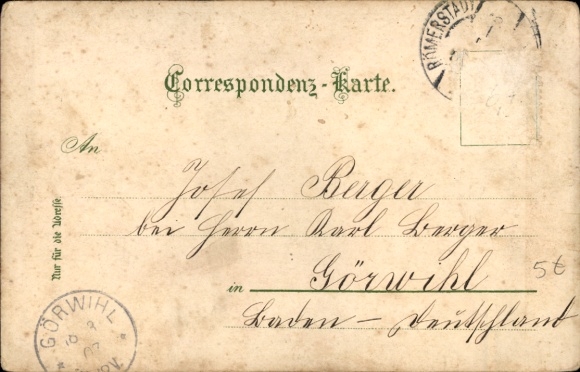 RÖMERSTADT
Correspondenz-Karte.
An
Josef Berger
bei Herrn Karl Berger
in Görwihl
Baden – Deutschland
Nur für die Adresse
5€
GÖRWIHL